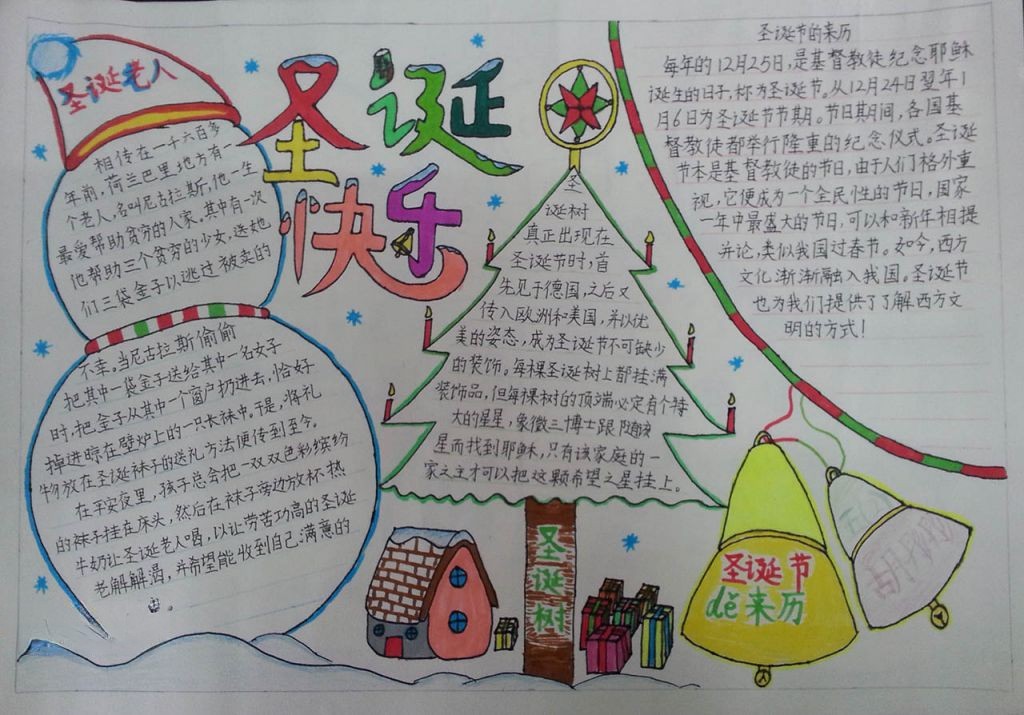 圣诞快乐
圣诞老人
相传在一千六百多
年前,荷兰巴里地方有一
个老人,名叫尼古拉斯,他一生
最爱帮助贫穷的人家。其中有一次
他帮助三个贫穷的少女,送她
们三袋金子以逃过被卖的
不幸。当尼古拉斯偷偷
把其中一袋金子送给其中一名女子
时,把金子从其中一个窗户扔进去,恰好
掉进晾在壁炉上的一只长袜中。于是,将礼
物放在圣诞袜子的送礼方法便传到至今。
在平安夜里,孩子总会把一双双色彩缤纷
的袜子挂在床头,然后在袜子旁边放杯热
牛奶让圣诞老人喝,以让劳苦功高的圣诞
老解解渴,并希望能收到自己满意的
圣
诞树
真正出现在
圣诞节时,首
先见于德国,之后又
传入欧洲和美国,并以优
美的姿态,成为圣诞节不可缺少
的装饰。每棵圣诞树上都挂满
装饰品,但每棵树的顶端必定有个特
大的星星,象徵三博士跟随该
星而找到耶稣,只有该家庭的一
家之主才可以把这颗希望之星挂上。
圣诞树
圣诞节的来历
每年的12月25日,是基督教徒纪念耶稣
诞生的日子,称为圣诞节。从12月24日翌年1
月6日为圣诞节节期。节日期间,各国基
督教徒都举行隆重的纪念仪式。圣诞
节本是基督教徒的节日,由于人们格外重
视,它便成为一个全民性的节日,国家
一年中最盛大的节日,可以和新年相提
并论,类似我国过春节。如今,西方
文化渐渐融入我国。圣诞节
也为我们提供了了解西方文
明的方式!
圣诞节
dě来历